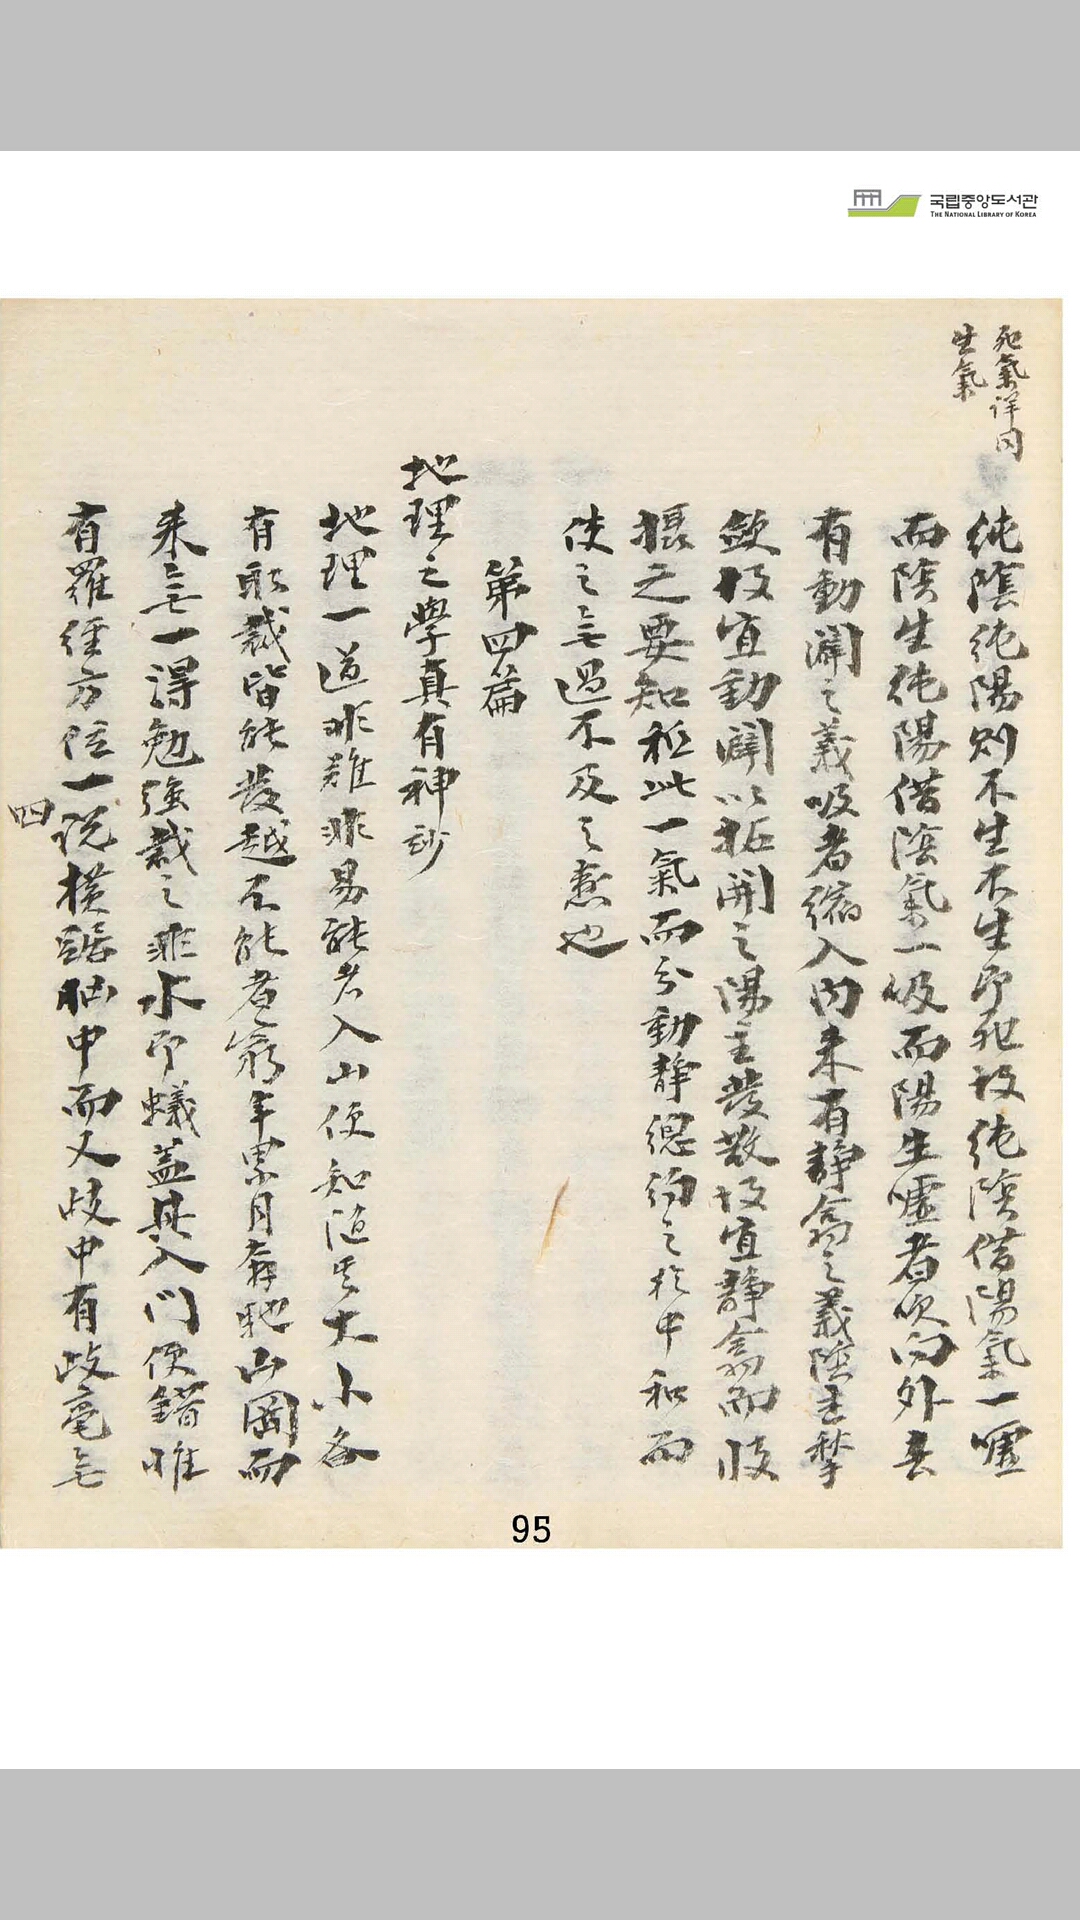 국립중앙도서관
THE NATIONAL LIBRARY OF KOREA
死氣詳內
生氣
純陰純陽則不生不生即死故純陰借陽氣一噓
而陰生純陽借陰氣一吸而陽生噓者吹向外去
有動闢之義吸者縮入內来有静翕之義陰主擎
斂故宜動闢以拓開之陽主發散故宜静翕而收
攝之要知秪此一氣而分動静總約之扵中和而
使之無過不及之愆也
第四篇
地理之學真有神妙
地理一道非難非易能者入山便知随其大小各
有取裁皆能發越不能者窮年累月奔馳山岡而
来無一得勉強裁之非水即蟻盖其入門便錯惟
有羅經方位一說横踞胸中而又歧中有歧毫無
四
95